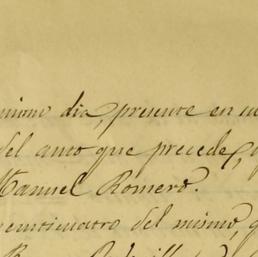 mismo dia, presente en
del auto que precede,
Manuel Romero.
veinticuatro del mismo,